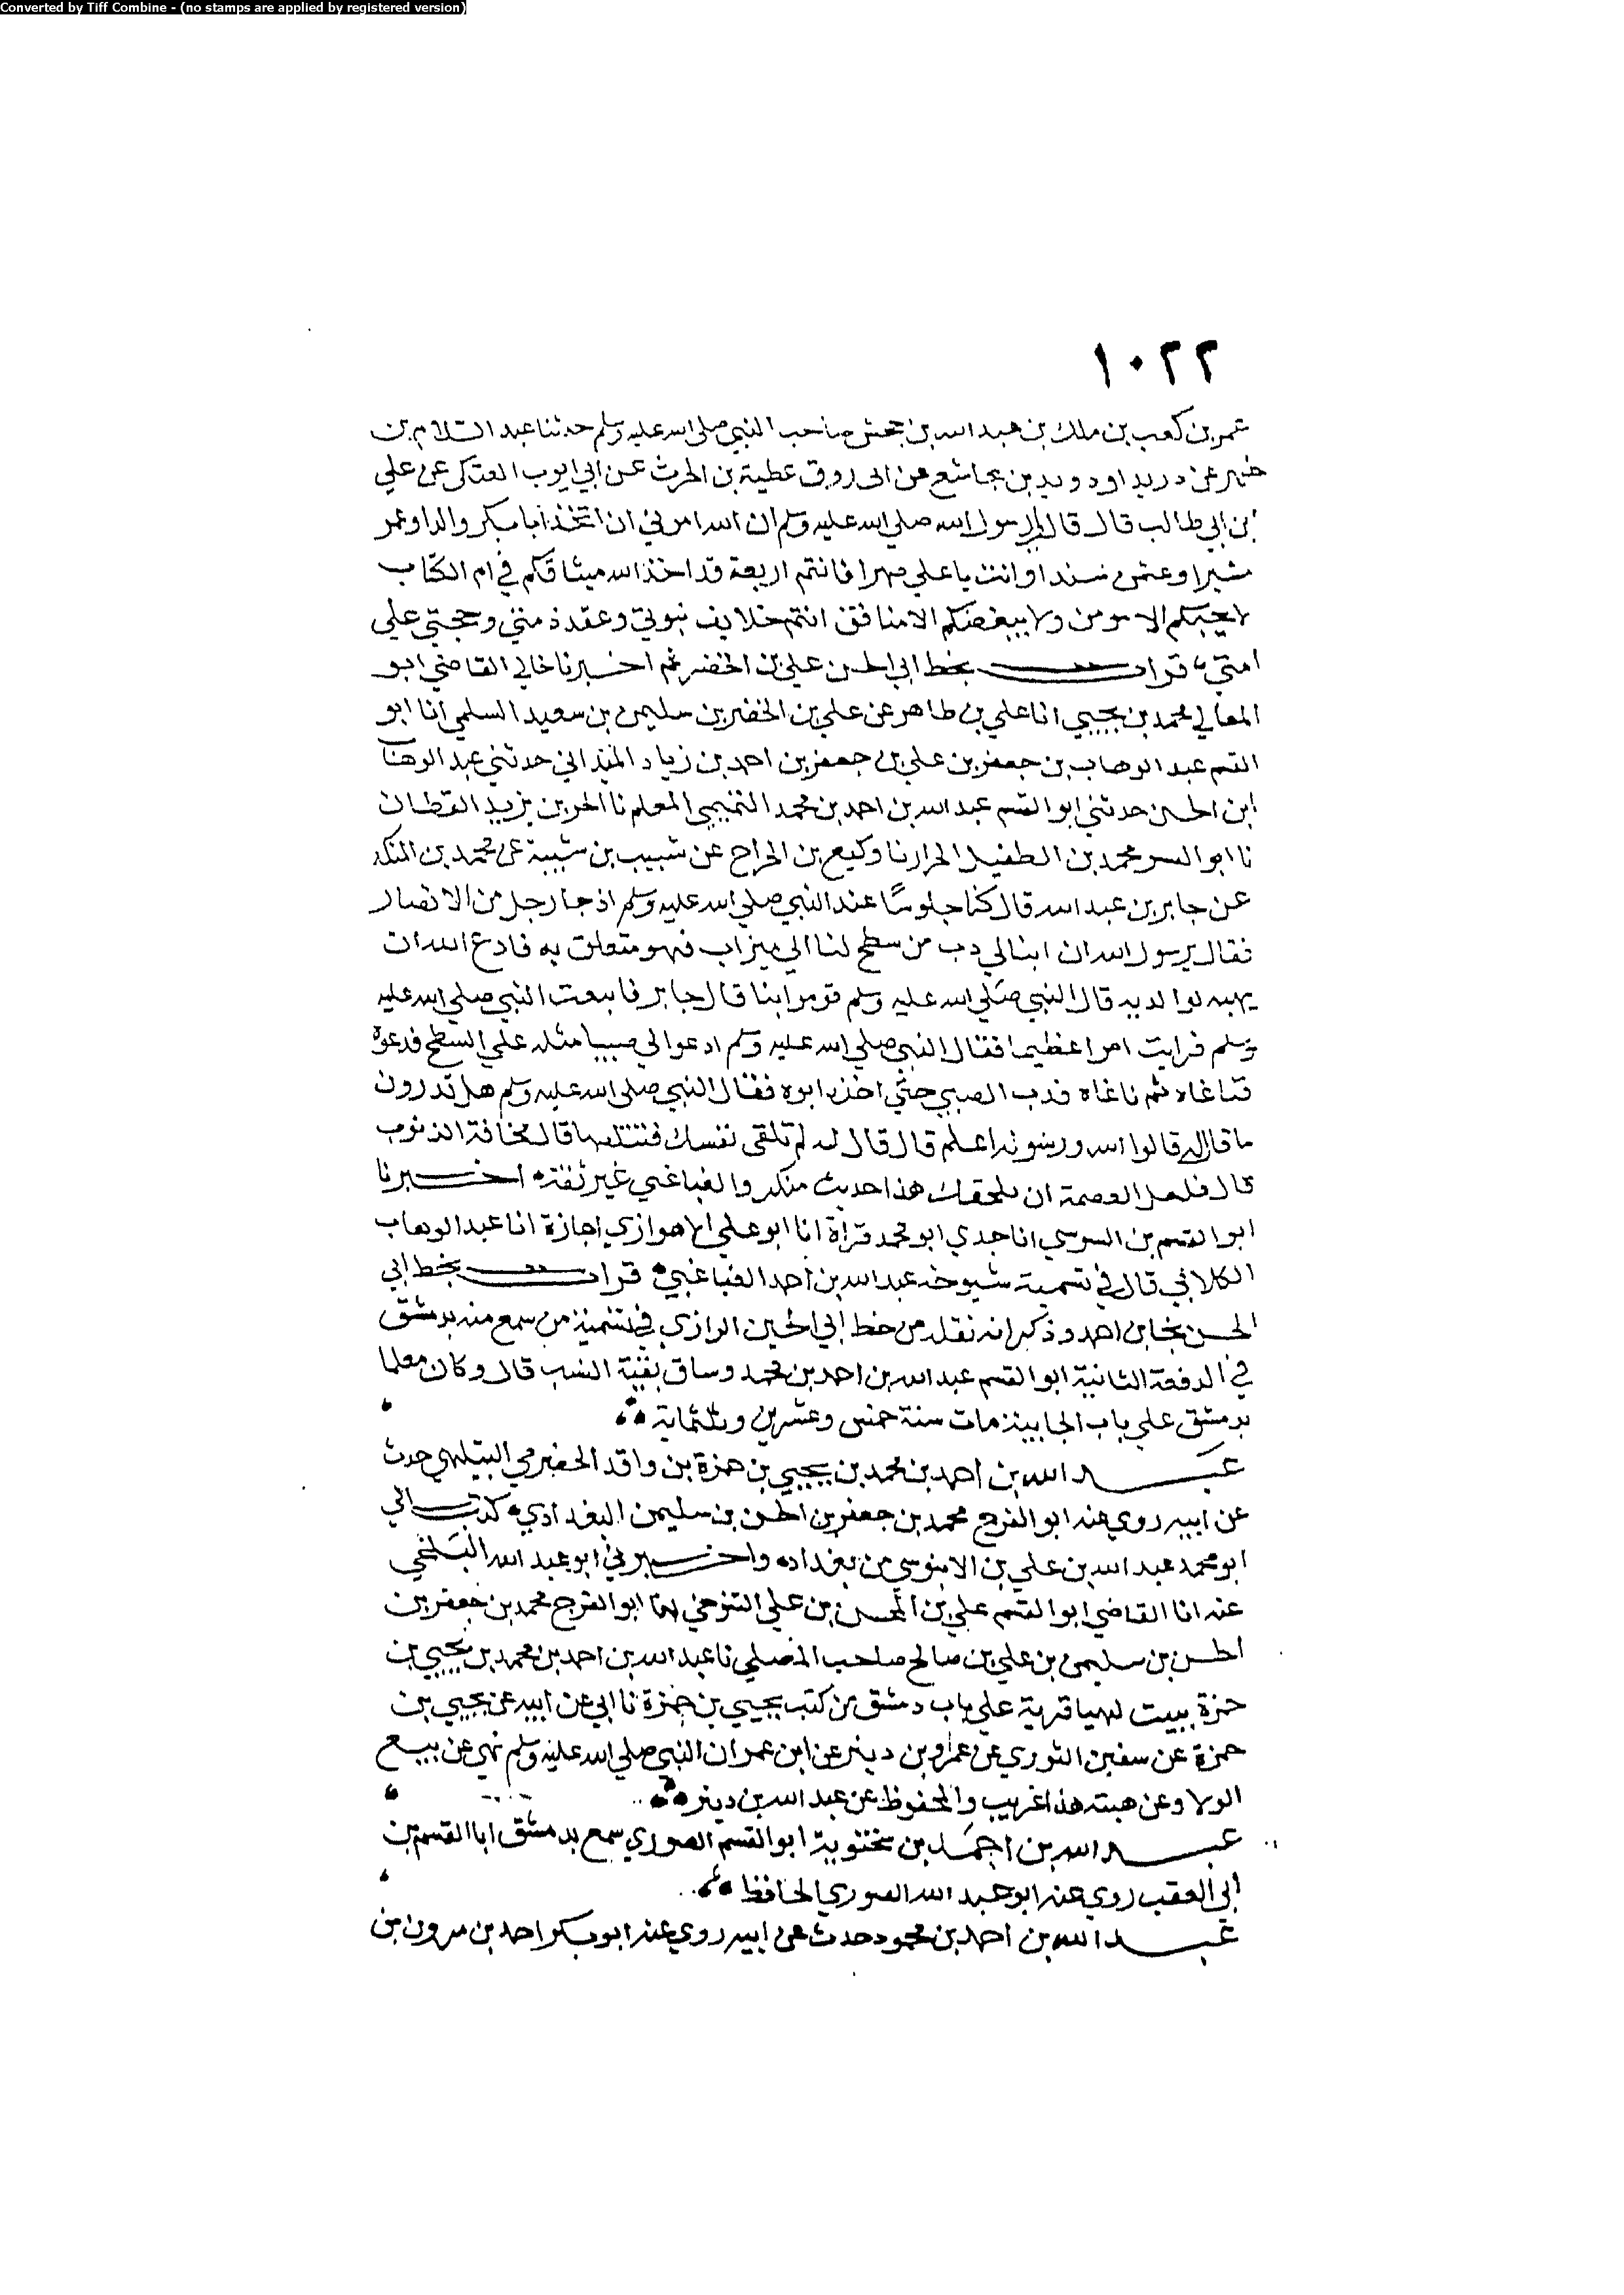 Converted by Tiff Combine - (no stamps are applied by registered version)
١٠٢٢
عمر بن كعب بن ملك بن عبد الله بن جحش صاحب النبي صلى الله عليه وسلم حدثنا عبد السلام بن
عن دريد او دويد بن مجاشع عن ابي روق عطية بن الحرث عن ابي ايوب العتكي عن علي
ابن ابي طالب قال قال لي رسول الله صلي الله عليه وسلم ان الله امرني ان اتخذ ابا بكر والدا وعمر
مشيرا وعثمن سندا وانت يا علي صهرا فانتم اربعة قد اخذ الله ميثاقكم في ام الكتاب
لا يحبكم الا مومن ولا يبغضكم الا منافق انتم خلايف نبوتي وعقد ذمتي وحجتي علي
امتي قرات بخط ابي الحسن علي بن الخضر ثم اخبرنا خالي القاضي ابو
المعالي محمد بن يحيي انا علي بن طاهر عن علي بن الخضر بن سليمن بن سعيد السلمي انا ابو
القسم عبد الوهاب بن جعفر بن علي بن جعفر بن احمد بن زياد الميداني حدثني عبد الوهاب
ابن الحسن حدثني ابو القسم عبد الله بن احمد بن محمد التميمي المعلم نا الحر بن يزيد القطان
نا ابو السر محمد بن الطفيل الحرار نا وكيع بن الجراح عن شبيب بن شيبة عن محمد بن المنكدر
عن جابر بن عبد الله قال كنا جلوسًا عند النبي صلي الله عليه وسلم اذ جا رجل من الانصار
فقال يرسول الله ان ابنا لي دب من سطح لنا الي ميزاب فهو متعلق به فادع الله ان
يهبه لوالديه قال النبي صلي الله عليه وسلم قوموا بنا قال جابر فاتبعت النبي صلي الله عليه
وسلم فرايت امرا عظيما فقال النبي صلي الله عليه وسلم ادعوا لي صبيا مثله علي السطح فدعوه
فناغاه ثم ناغاه فدب الصبي حتي اخذه ابوه فقال النبي صلى الله عليه وسلم هل تدرون
ما قال له قالوا الله ورسوله اعلم قال قال له لم تلقي نفسك فتتلها قال مخافة الذنوب
قال فلعل العصمة ان تلحقك هذا حديث منكر والغباغبي غير ثقة اخبرنا
ابو القسم بن السوسي انا جدي ابو محمد قراة انا ابو علي الاهوازي اجازة انا عبد الوهاب
الكلابي قال في تسمية شيوخه عبد الله بن احمد الغباغبي قرات بخط ابي
الحسن نجا بن احمد وذكر انه نقله من خط ابي الحسين الرازي في تسمية من سمع منه بدمشق
في الدفعة الثانية ابو القسم عبد الله بن احمد بن محمد وساق بقية النسب قال وكان معلما
بدمشق علي باب الجابية مات سنة خمس وعشرين وثلثماية
عبد الله بن احمد بن محمد بن يحيي بن حمزة بن واقد الحضرمي البتلهي حدث
عن ابيه روي عنه ابو الفرج محمد بن جعفر بن الحسن بن سليمن البغدادي كتب الي
ابو محمد عبد الله بن علي بن الابنوسي من بغداد واخبرني ابو عبد الله البلخي
عنه انا القاضي ابو القسم علي بن المحسن بن علي التنوخي انا ابو الفرج محمد بن جعفر بن
الحسن بن سليمن بن علي بن صالح صاحب المصلي نا عبد الله بن احمد بن محمد بن يحيي بن
حمزة ببيت لهيا قرية علي باب دمشق من كتب يحيي بن حمزة نا ابي عن ابيه عن يحيي بن
حمزة عن سفين الثوري عن عمرو بن دينر عن ابن عمر ان النبي صلي الله عليه وسلم نهي عن بيع
الولا وعن هبته هذا غريب والمحفوظ عن عبد الله بن دينر
عبد الله بن احمد بن بختويه ابو القسم الصوري سمع بدمشق ابا القسم بن
ابي العقب روي عنه ابو عبد الله الصوري الحافظ
عبد الله بن احمد بن محمود حدث عن ابيه روي عنه ابو بكر احمد بن مرون بن